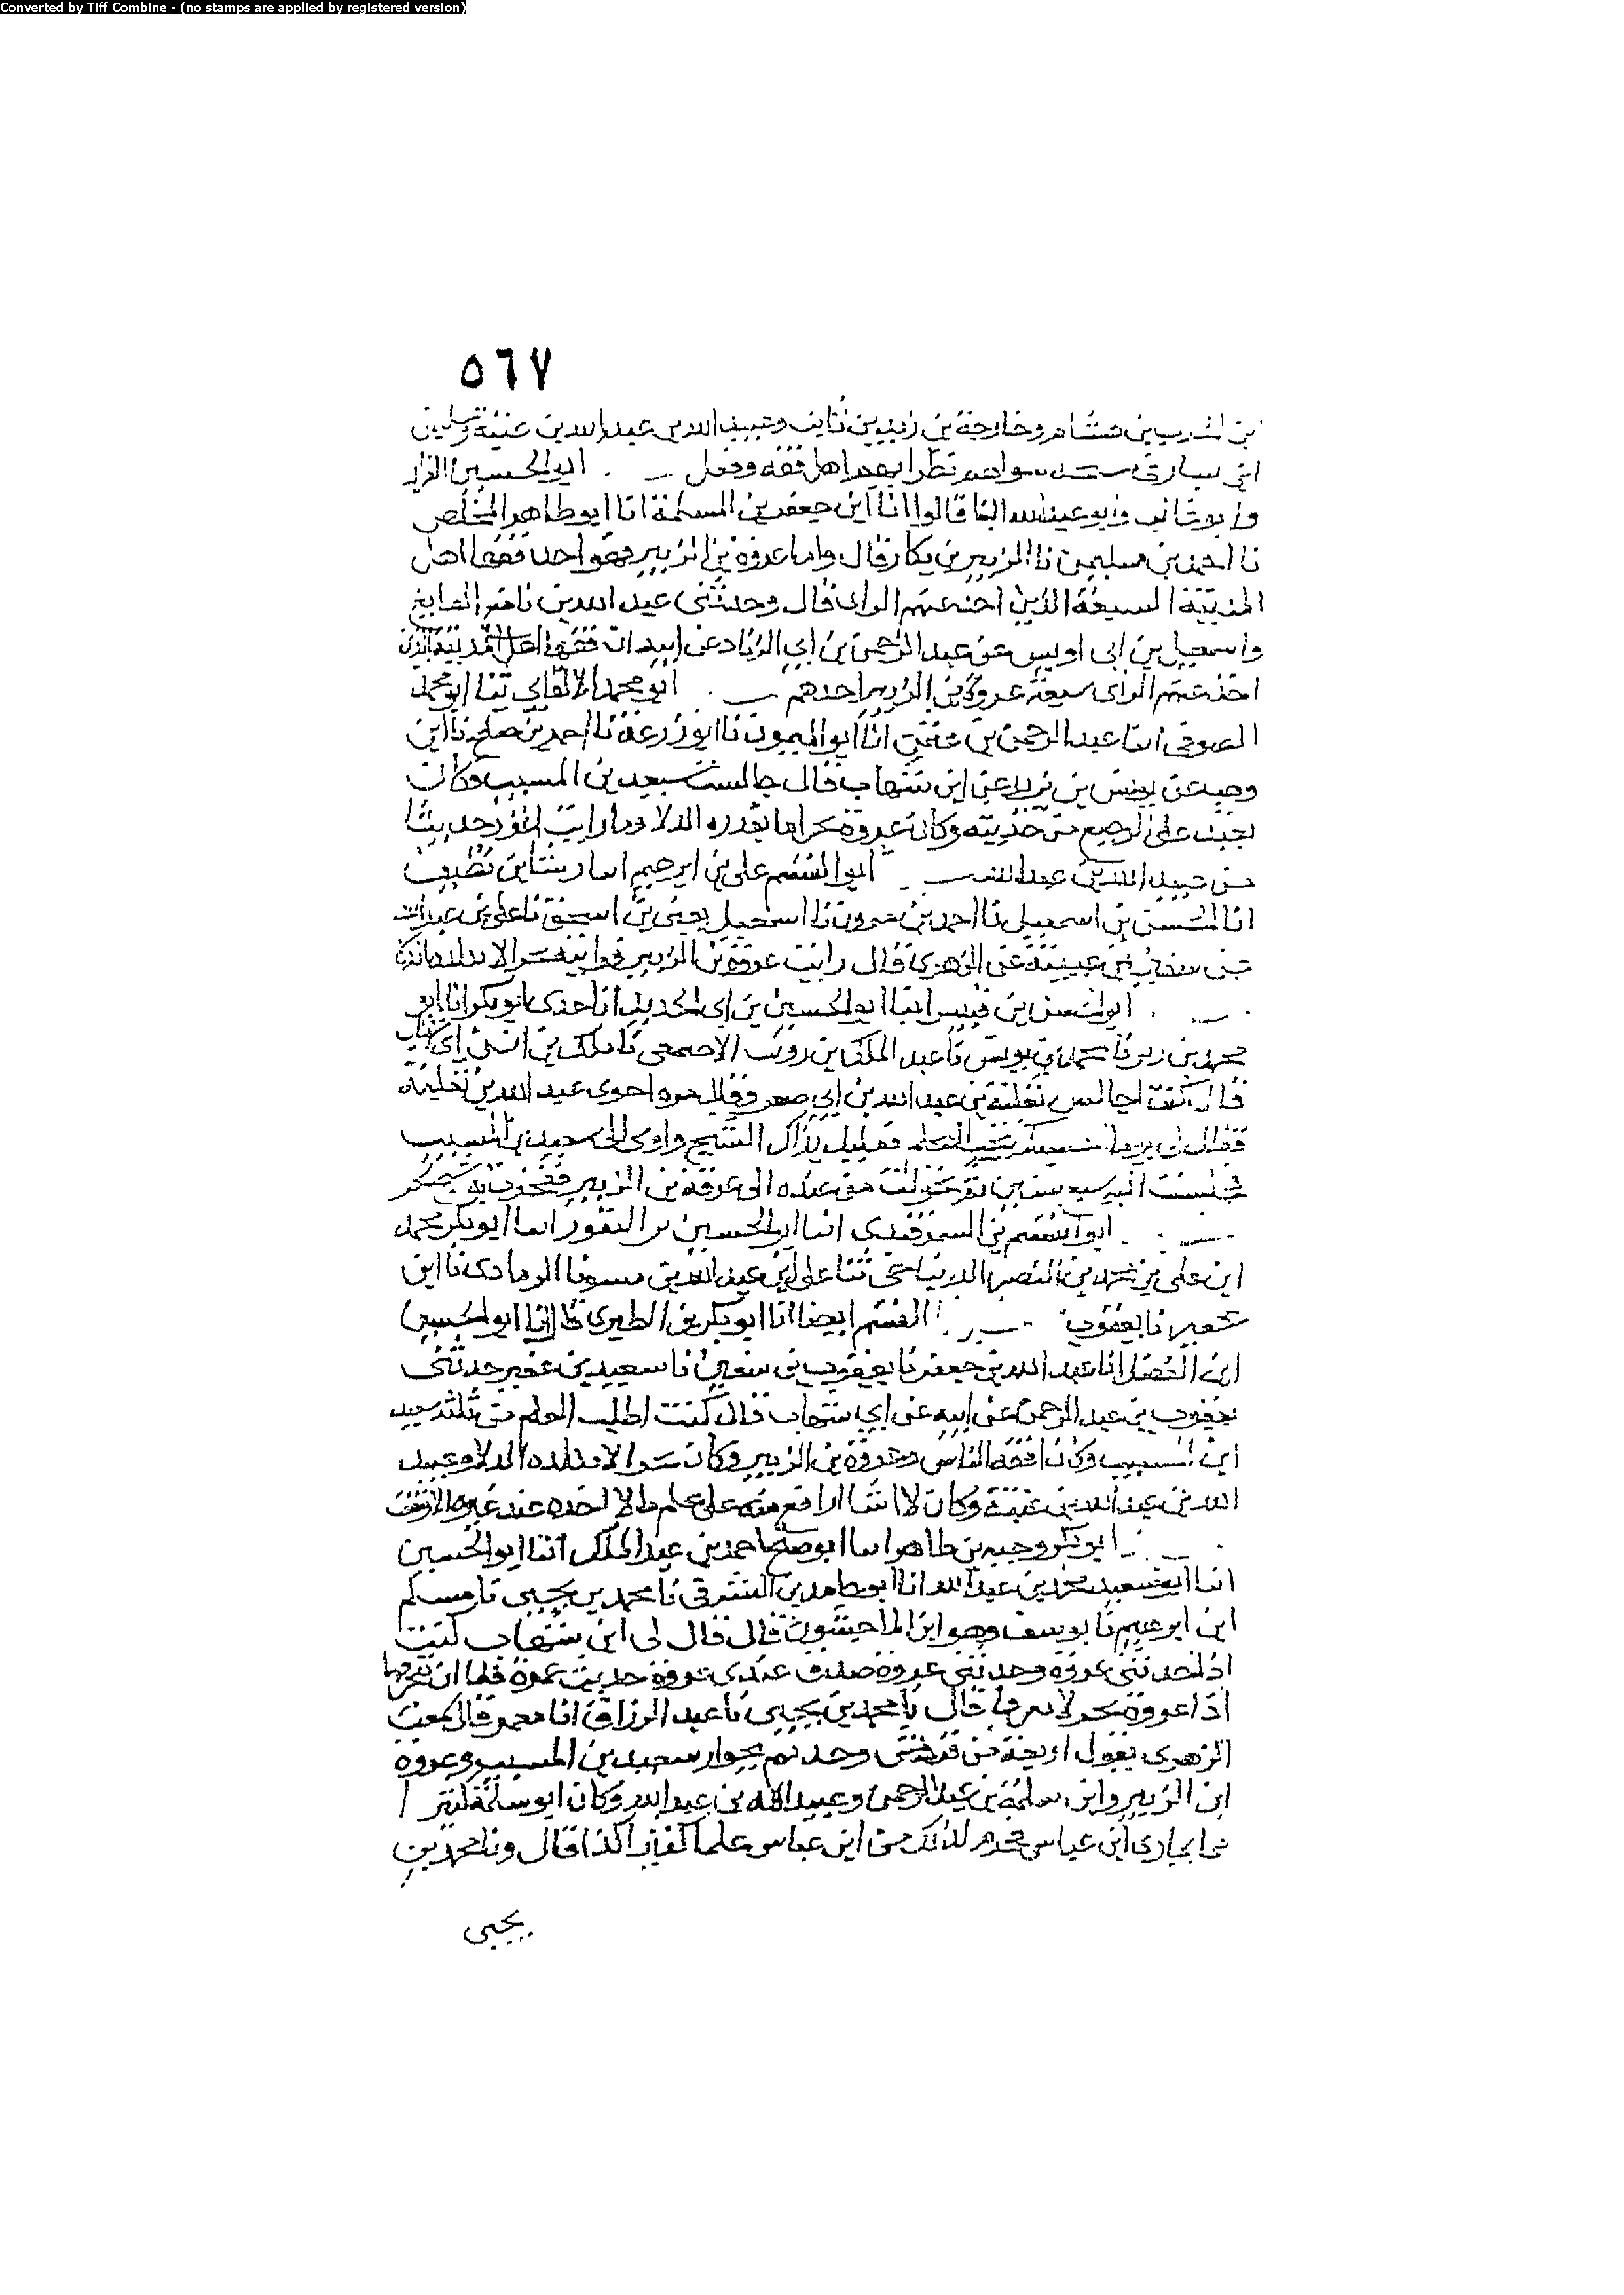 Converted by Tiff Combine - (no stamps are applied by registered version)
٥٦٧
بن هشام وخارجة بن زيد بن ثابت وعبيد الله بن عبد الله بن عتبة وسليمن
ابن يسار في سواهم نظرايهم اهل فقه وفضل ابو الحسين الفرا
وابو غالب وابو عبد الله البنا قالوا انا ابن جعفر بن المسلمة انا ابو طاهر المخلص
نا احمد بن سليمن نا الزبير بن بكار قال واما عروة بن الزبير فهو احد فقها اهل
المدينة السبعة الذين اخذ عنهم الراى قال وحدثنى عبد الله بن نافع الصايغ
واسمعيل بن ابى اويس عن عبد الرحمن بن ابي الزناد عن ابيه ان فقها اهل المدينة الذين
اخذ عنهم الراى سبعة عروة بن الزبير احدهم ابو محمد الاكفاني ثنا ابو محمد
الصوفى انا عبد الرحمن بن عثمن انا ابو الميمون نا ابو زرعة نا احمد بن صلح نا ابن
وهب عن يونس بن يزيد عن ابن شهاب قال جالست سعيد بن المسيب وكان
من حديثه وكان عروة بحرا ما تكدره الدلا وما رايت اغزر حديثا
من عبيد الله بن عبد الله ابو القسم على بن ابرهيم انا رشا بن نظيف
انا الحسن بن اسمعيل نا احمد بن مروان نا اسمعيل بن اسحق نا على بن عبد الله
عن سفين بن عيينة عن الزهرى قال رايت عروة بن الزبير فرايته بحرا لا تكدره
ابو الحسن بن قبيس انا ابو الحسين بن ابى الحديد انا جدى ابو بكر انا ابو
محمد بن زبر نا محمد بن يونس نا عبد الملك بن قريب الاصمعى نا ملك بن انس
قال كنت اجالس ثعلبة بن عبد الله بن ابي صعير فقال عبد الله بن ثعلبة
فقال لى يوما فعليك بذاك الشيخ واومى الى سعيد بن المسيب
فجلست اليه سبع سنين ثم تحولت من عنده الى عروة بن الزبير ففجرت به بحر
ابو القسم بن السمرقندى انا ابو الحسين بن النقور انا ابو بكر محمد
ابن على بن محمد بن النضر الديباجى ثنا على بن عبد الله بن مبشر نا الرمادى نا ابن
عفير نا يعقوب القسم ايضا انا ابو بكر بن الطبرى قالا انا ابو الحسين
ابن الفضل انا عبد الله بن جعفر نا يعقوب بن سفين نا سعيد بن عفير حدثنى
يعقوب بن عبد الرحمن عن ابيه عن ابن شهاب قال كنت اطلب العلم من ثلثة سعيد
ابن المسيب وكان افقه الناس وعروة بن الزبير وكان بحرا لا تكدره الدلا وعبيد
الله بن عبد الله بن عتبة وكان لا اشا ان اقع منه على علم ما لا اجده عند غيره الا وقعت
ابو بكر وجيه بن طاهر انا ابو صلح احمد بن عبد الملك انا ابو الحسين
انا ابو سعيد محمد بن عبد الله انا ابو حامد بن الشرقى نا محمد بن يحيى نا مسلم
ابن ابرهيم نا يوسف وهو ابن الماجشون قال قال لى ابن شهاب كنت
اذا حدثنى عروة وحدثتنى عمرة صدق عندى عروة حديث عمرة فلما ان تبحرتهما
اذا عروة بحر لا ينزف قال نا محمد بن يحيى نا عبد الرزاق انا معمر قال سمعت
الزهرى يقول اربعة من قريش وجدتهم بحورا سعيد بن المسيب وعروة
ابن الزبير وابن سلمة بن عبد الرحمن وعبيد الله بن عبد الله وكان ابو سلمة كثيرا
ما يمارى ابن عباس فحرم لذلك من ابن عباس علما كثيرا كذا قال ونا محمد بن
يحيى